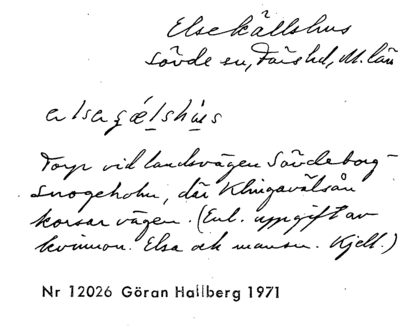 Elsekällshus
Sövde sn, Färs hd, M. län
elsaʒælshus
Torp vid landsvägen Sövdeborg-
Snogeholm, där Klingavälsån
korsar vägen. (Enl. uppgift av
kvinnan Elsa och mannen Kjell.)
Nr 12026 Göran Hallberg 1971